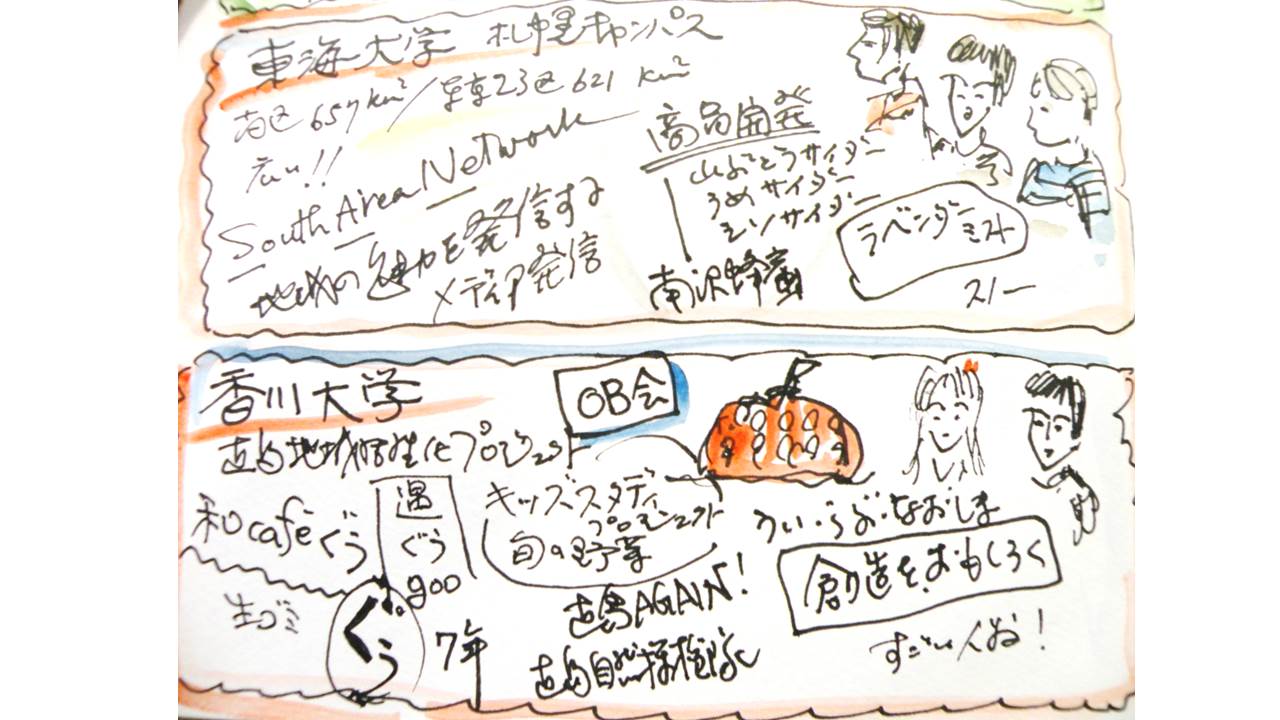 東海大学 札幌キャンパス
南区 657km²/東京23区 621 km²
広い!!
South Area Network
地域の魅力を発信する
メディア発信
商品開発
山ぶどうサイダー
うめサイダー
シソサイダー
南沢蜂蜜
ラベンダーミスト
スノー
香川大学
直島地域活性化プロジェクト
OB会
和caféぐぅ
遇
ぐう
goo
生ゴミ
ぐぅ
7年
キッズスタディ
プロジェクト
旬の野菜
直島AGAIN!
直島自然探検隊
うぃ・らぶ・なおしま
創造をおもしろく
すごい人お!